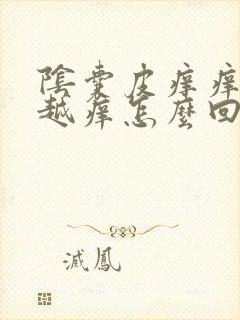 陰囊皮癢癢
越癢怎麼回
滅鳳